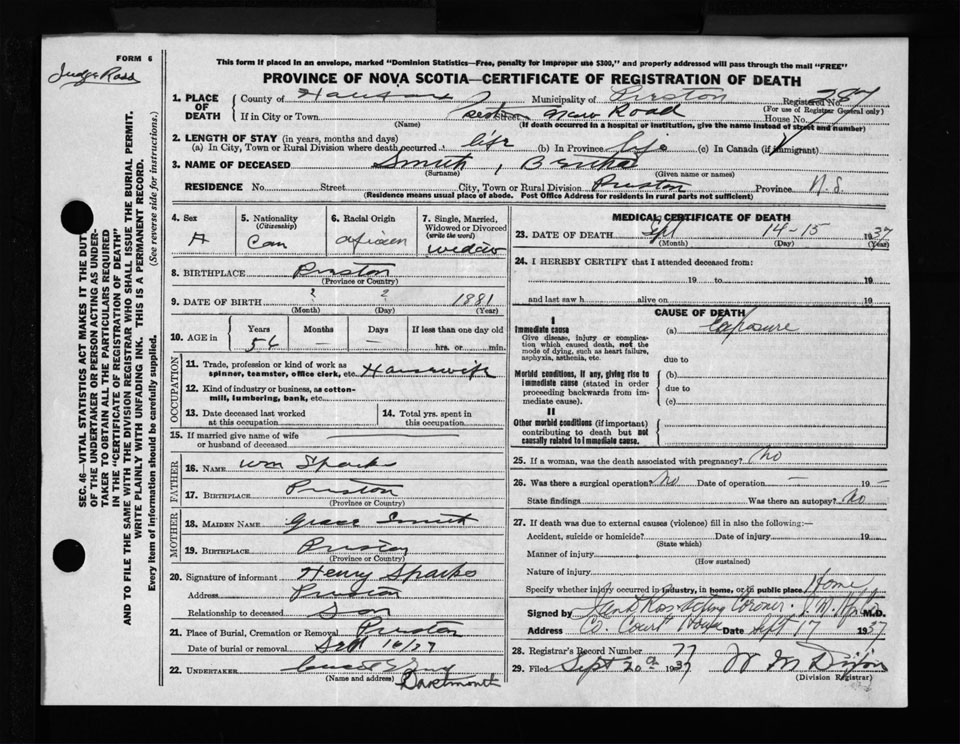 FORM 6
Judge Ross
This form if placed in an envelope, marked "Dominion Statistics—Free, penalty for improper use $300," and properly addressed will pass through the mail "FREE"
PROVINCE OF NOVA SCOTIA—CERTIFICATE OF REGISTRATION OF DEATH
1. PLACE OF DEATH
County of Municipality of Preston Registered No.
(For use of Registrar General only)
If in City or Town New Road House No.
(Name) (If death occurred in a hospital or institution, give the name instead of street and number)
2. LENGTH OF STAY (in years, months and days)
(a) In City, Town or Rural Division where death occurred life (b) In Province life (c) In Canada (if immigrant)
3. NAME OF DECEASED Smith,
(Surname) (Given name or names)
RESIDENCE No. Street City, Town or Rural Division Preston Province N.S.
(Residence means usual place of abode. Post Office Address for residents in rural parts not sufficient)
4. Sex
5. Nationality (Citizenship) Can
6. Racial Origin
7. Single, Married, Widowed or Divorced (write the word) widow
8. BIRTHPLACE Preston
(Province or Country)
9. DATE OF BIRTH ? ? 1881
(Month) (Day) (Year)
10. AGE in Years Months Days If less than one day old
56 — — hrs. or min.
OCCUPATION
11. Trade, profession or kind of work as spinner, teamster, office clerk, etc. Housewife
12. Kind of industry or business, as cotton-mill, lumbering, bank, etc.
13. Date deceased last worked at this occupation
14. Total yrs. spent in this occupation
15. If married give name of wife or husband of deceased
FATHER
16. NAME Wm Sparks
17. BIRTHPLACE Preston
(Province or Country)
MOTHER
18. MAIDEN NAME Grace Smith
19. BIRTHPLACE Preston
(Province or Country)
20. Signature of informant Henry Sparks
Address Preston
Relationship to deceased Son
21. Place of Burial, Cremation or Removal Preston
Date of burial or removal Sept 16/37
22. UNDERTAKER
(Name and address) Dartmouth
MEDICAL CERTIFICATE OF DEATH
23. DATE OF DEATH Sept 14-15 1937
(Month) (Day) (Year)
24. I HEREBY CERTIFY that I attended deceased from:
19 to 19
and last saw h alive on 19
CAUSE OF DEATH
I
Immediate cause (a) Exposure
Give disease, injury or complication which caused death, not the mode of dying, such as heart failure, asphyxia, asthenia, etc.
due to
Morbid conditions, if any, giving rise to immediate cause (stated in order proceeding backwards from immediate cause).
(b)
due to
(c)
II
Other morbid conditions (if important) contributing to death but not causally related to immediate cause.
25. If a woman, was the death associated with pregnancy? No
26. Was there a surgical operation? No Date of operation — 19—
State findings Was there an autopsy? No
27. If death was due to external causes (violence) fill in also the following:—
Accident, suicide or homicide? Date of injury 19
(State which)
Manner of injury
(How sustained)
Nature of injury
Specify whether injury occurred in industry, in home, or in public place Home
Signed by Acting Coroner. M.D.
Address Co. Court House Date Sept 17 1937
28. Registrar's Record Number 77
29. Filed Sept 20 1937
(Division Registrar)
SEC. 46—VITAL STATISTICS ACT MAKES IT THE DUTY
OF THE UNDERTAKER OR PERSON ACTING AS UNDER-
TAKER TO OBTAIN ALL THE PARTICULARS REQUIRED
IN THE "CERTIFICATE OF REGISTRATION OF DEATH"
AND TO FILE THE SAME WITH THE DIVISION REGISTRAR WHO SHALL ISSUE THE BURIAL PERMIT.
WRITE PLAINLY WITH UNFADING INK. THIS IS A PERMANENT RECORD.
Every item of information should be carefully supplied. (See reverse side for instructions.)